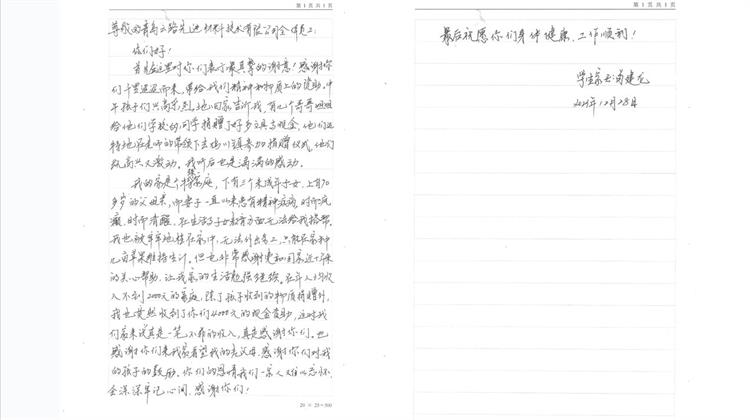 第1页共1页
尊敬的青岛云路先进材料技术有限公司全体员工:
你们好!
首先在这里对你们表示最真挚的谢意!感谢你
们千里迢迢而来,带给我们精神和物质上的援助。中
午孩子们兴高采烈地回家告诉我,有几个哥哥姐姐
给他们学校的同学捐赠了好多文具与现金,他们还
特地在老师的带领下去
镇参加捐赠仪式,他们
既高兴又激动。我听后也是满满的感动。
我的家是个特殊家庭,下有三个未成年子女,上有70
多岁的父母亲,而妻子一直以来患有精神疾病,时而疯
癫,时而清醒。在生活子女教育方面无法给我搭帮。
我也被牢牢地拴在家中,无法外出务工,只能在家种
几亩苹果维持生计。但也非常感谢党和国家近年来
的关心帮助,让我家的生活勉强继续。在年人均收
入不到2000元的家庭,除了孩子收到的物质捐赠外,
我也竟然收到了你们4000元的现金资助,这对我
们家来说真是一笔不菲的收入,真是感谢你们。也
感谢你们来我家看望我的老父母,感谢你们对我
的孩子的鼓励。你们的恩情我们一家人难以忘怀,
会深深牢记心间,感谢你们!
20 × 25=500
第1页共1页
最后祝愿你们身体健康、工作顺利!
学生家长:
建龙
12月28日